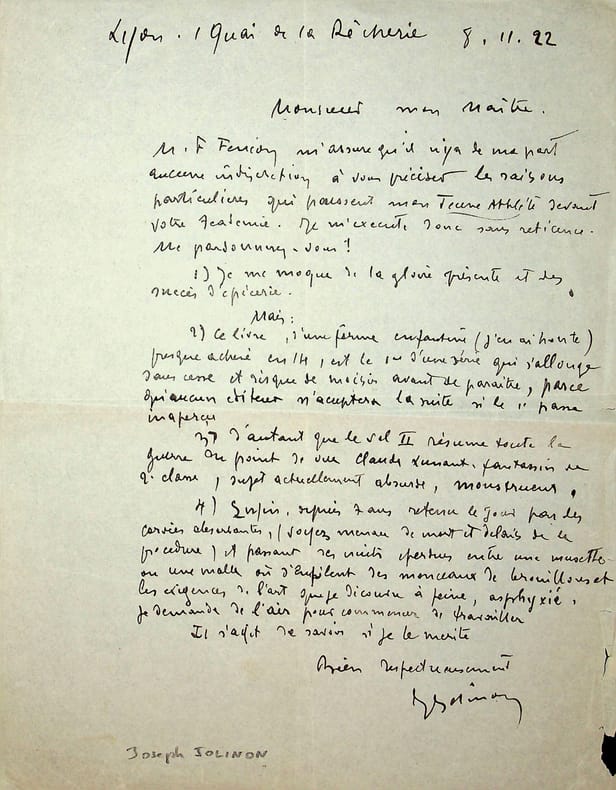 Lyon. 1 Quai de la Pêcherie 8.11.22
Monsieur mon Maître.
M. F m'assure qu'il n'y a de ma part
aucune indiscretion à vous préciser les raisons
particulieres qui poussent mon Jeune Athlète devant
votre Academie. Je m'execute donc sans reticence.
Me pardonnerez-vous?
1) Je me moque de la gloire présente et des
succès d'épicerie.
Mais:
2) Ce livre, d'une forme enfantine (j'en ai honte)
presque achevé en 14, est le 1er d'une série qui s'allonge
sans cesse et risque de moisir avant de paraître, parce
qu'aucun éditeur n'acceptera la suite si le 1er passe
inaperçu
3) D'autant que le vol II résume toute la
guerre du point de vue Claude Lunant. fantassin de
2e classe, sujet actuellement absurde, monstrueux.
4) Enfin, depuis 2 ans retenu le jour par des
corvées absorbantes, (voyez menau de mort et délais de
procédure) et passant des nuits entre une musette
ou une malle où s'empilent des monceaux de brouillons et
les exigences de l'art que je découvre à peine, asphyxié,
je demande de l'air pour commencer de travailler
Il s'agit de savoir si je le mérite
Bien respectueusement
Jolinon
Joseph JOLINON